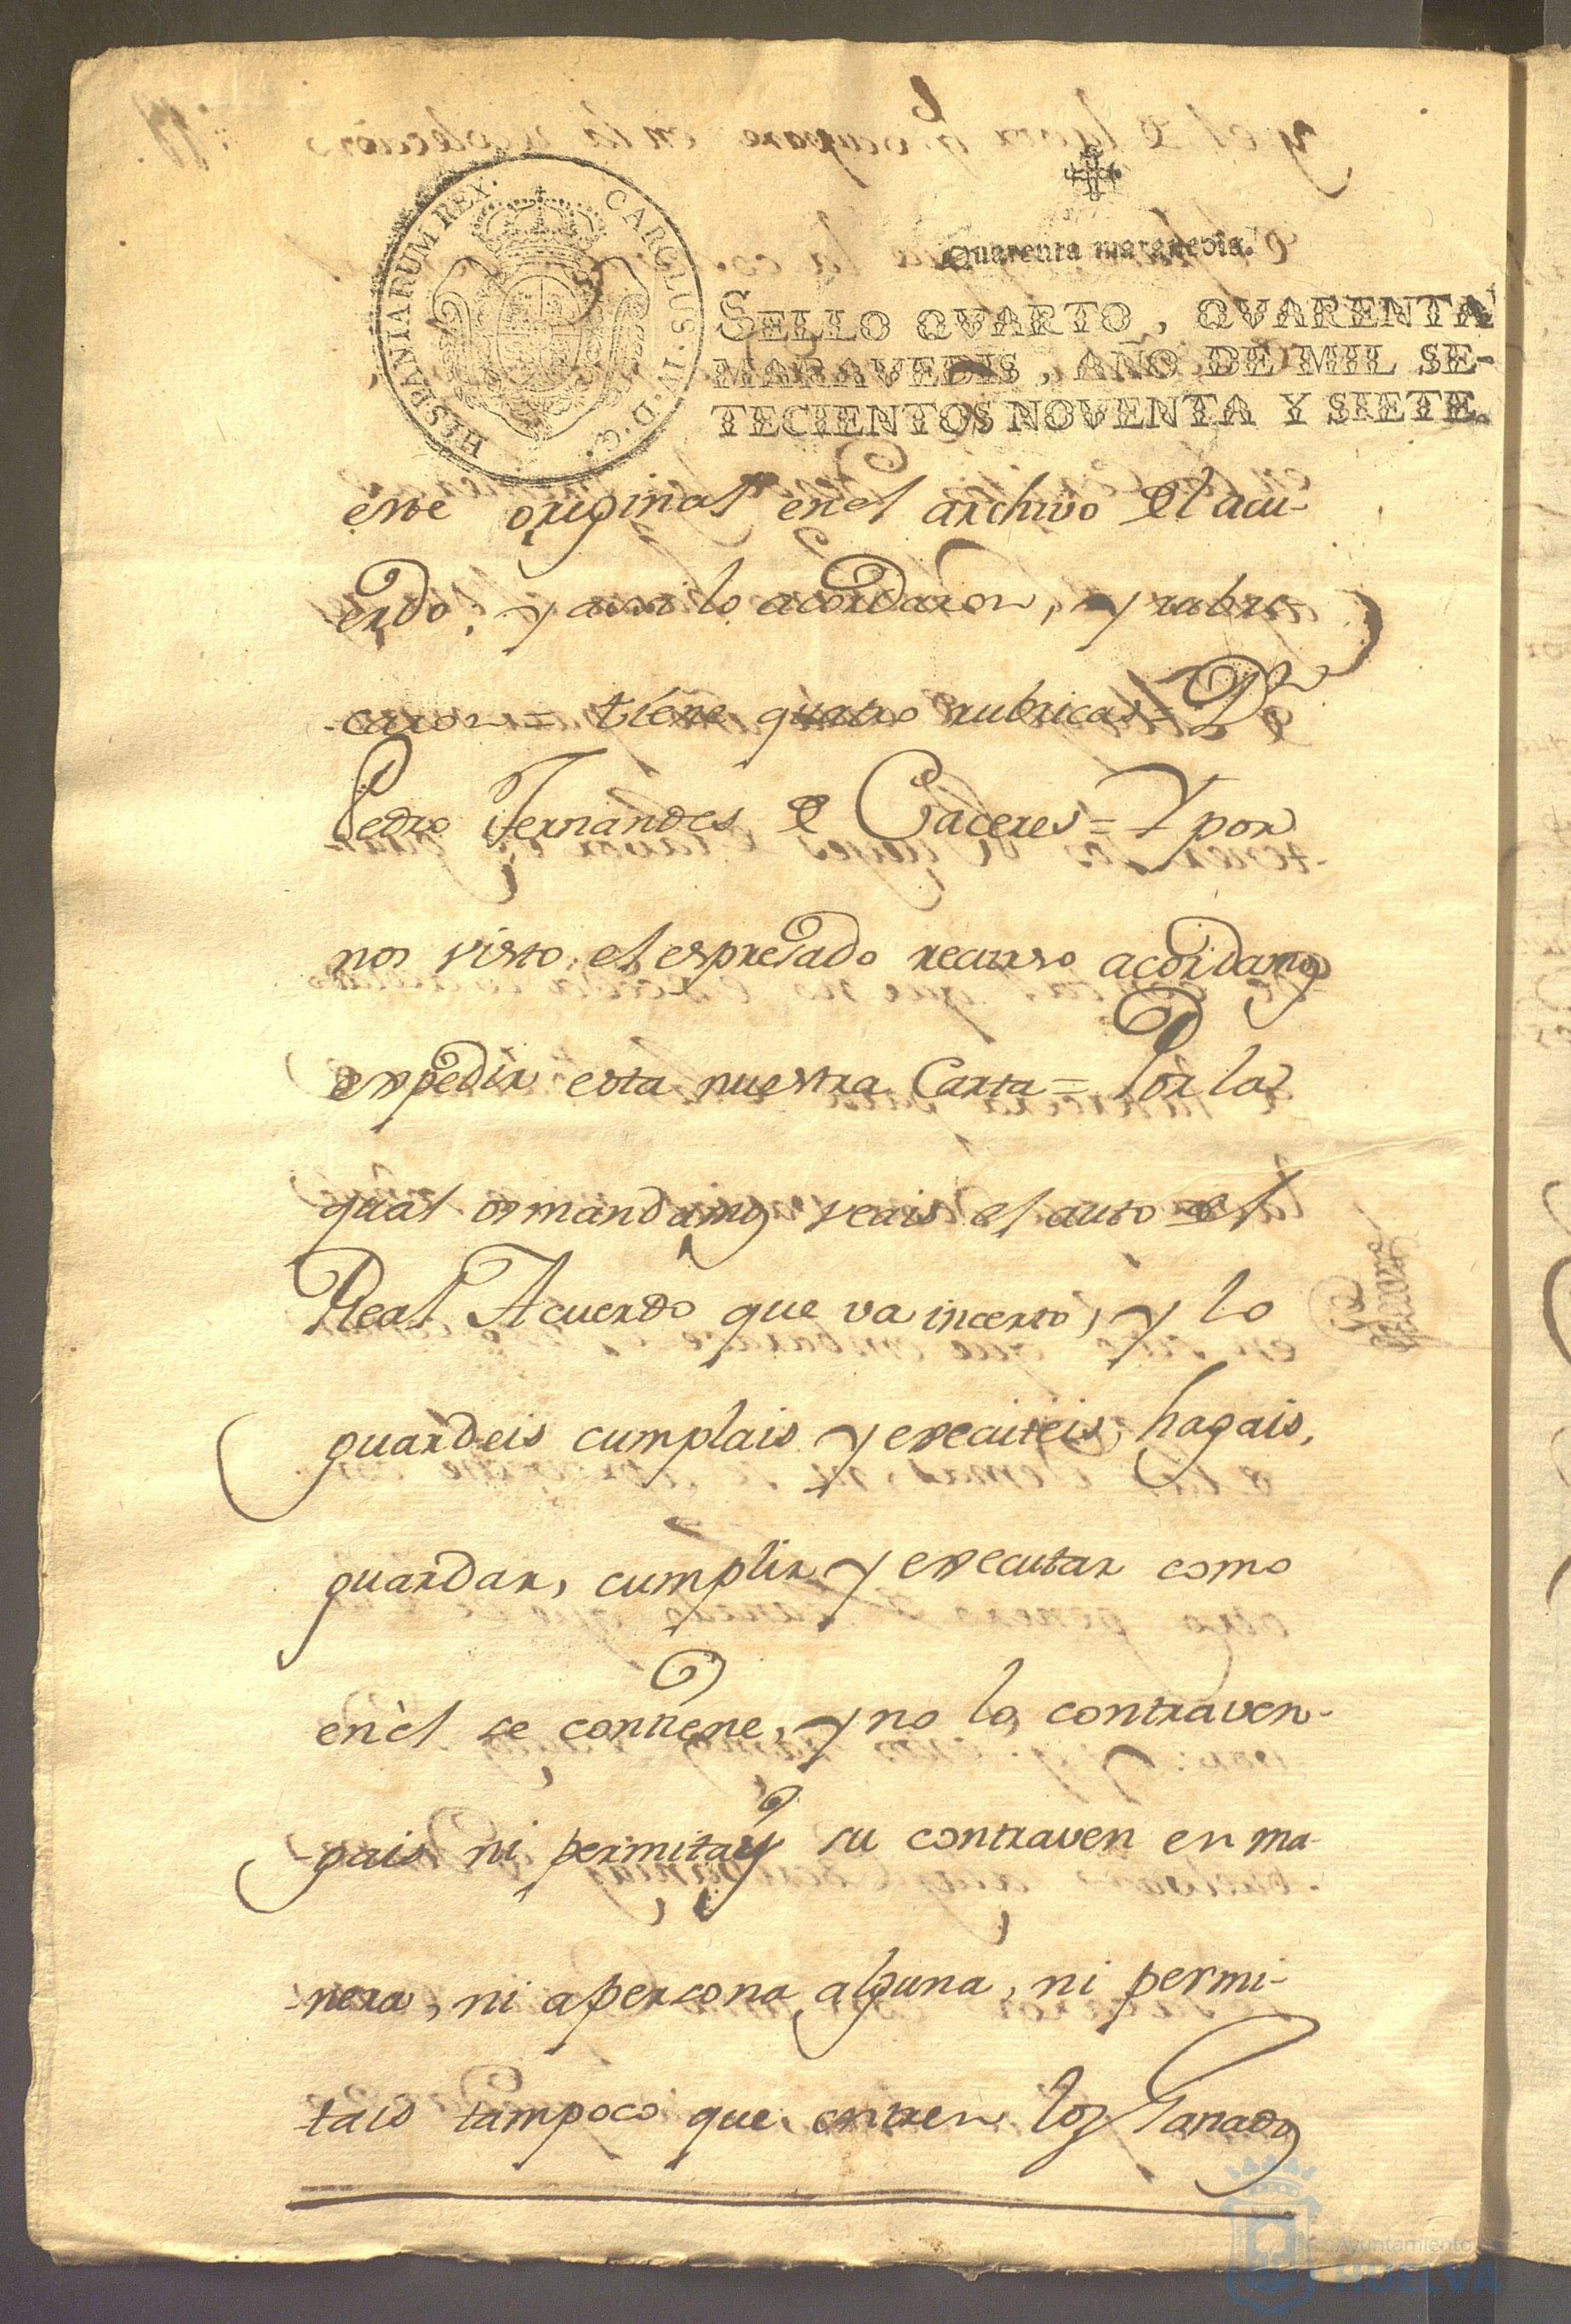 Quarenta maravedis.
HISPANIARUM REX. CAROLUS. IV. D. G.
SELLO QVARTO, QVARENTA
MARAVEDIS, AÑO DE MIL SE-
TECIENTOS NOVENTA Y SIETE.
este original en el archivo del acu-
erdo; y assi lo acordaron, y rubri-
caron = tiene quatro rubricas = Dn
Pedro Fernandes de Caceres = Y por
nos visto el espresado recurso acordamos
expedir esta nuestra Carta = Por la
qual os mandamos veais el auto del
Real Acuerdo que va incerto, y lo
guardeis cumplais y executeis, hagais,
guardar, cumplir y executar como
en el se contiene, y no lo contraven-
gais ni permitais su contraven en ma-
nera, ni a persona alguna, ni permi-
tais tampoco que entren los Ganados
Ayuntamiento
HUELVA